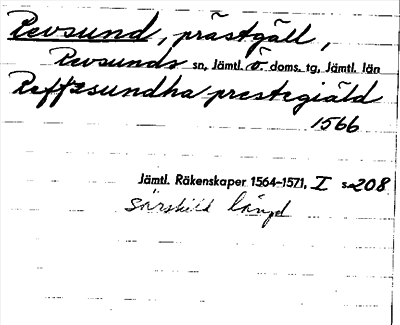 Revsund, prästgäll,
Revsunds sn, Jämtl. Ö. doms. tg, Jämtl. län
Reffzsundha prestegiäld
1566
Jämtl. Räkenskaper 1564-1571, I s. 208
särskild längd